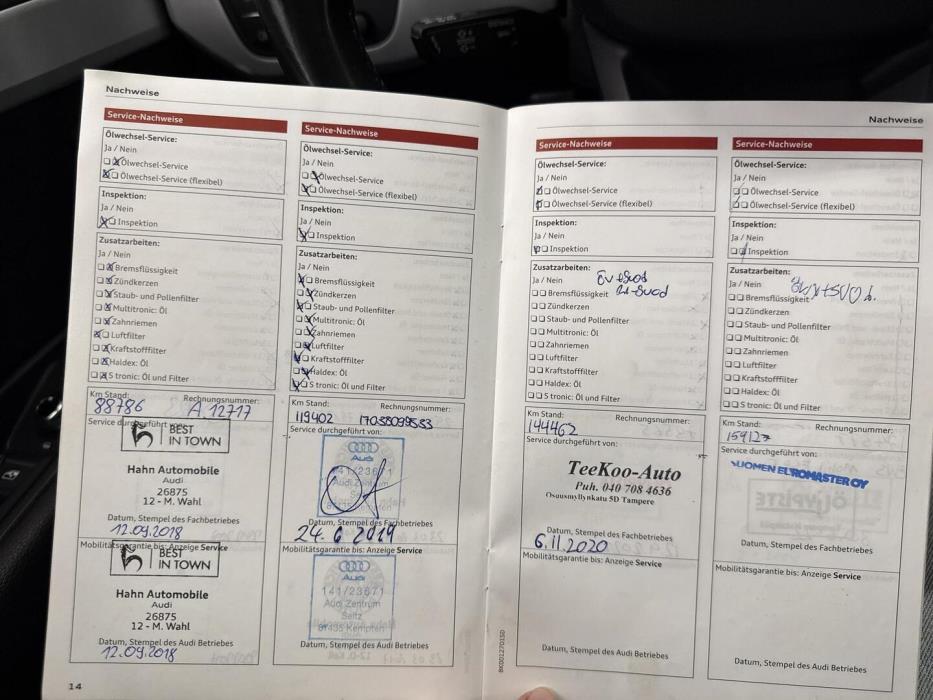 Nachweise
Service-Nachweise
Ölwechsel-Service:
Ja / Nein
Ölwechsel-Service
Ölwechsel-Service (flexibel)
Inspektion:
Ja / Nein
Inspektion
Zusatzarbeiten:
Ja / Nein
Bremsflüssigkeit
Zündkerzen
Staub- und Pollenfilter
Multitronic: Öl
Zahnriemen
Luftfilter
Kraftstofffilter
Haldex: Öl
S tronic: Öl und Filter
Km Stand: Rechnungsnummer:
88786 A 12717
Service durchgeführt von:
BEST
IN TOWN
Hahn Automobile
Audi
26875
12 - M. Wahl
Datum, Stempel des Fachbetriebes
12.09.2018
Mobilitätsgarantie bis: Anzeige Service
BEST
IN TOWN
Hahn Automobile
Audi
26875
12 - M. Wahl
Datum, Stempel des Audi Betriebes
12.09.2018
14
Service-Nachweise
Ölwechsel-Service:
Ja / Nein
Ölwechsel-Service
Ölwechsel-Service (flexibel)
Inspektion:
Ja / Nein
Inspektion
Zusatzarbeiten:
Ja / Nein
Bremsflüssigkeit
Zündkerzen
Staub- und Pollenfilter
Multitronic: Öl
Zahnriemen
Luftfilter
Kraftstofffilter
Haldex: Öl
S tronic: Öl und Filter
Km Stand: Rechnungsnummer:
119402 17058099583
Service durchgeführt von:
Audi
141/23671
Audi Zentrum
Datum, Stempel des Fachbetriebes
24.6.2019
Mobilitätsgarantie bis: Anzeige Service
Audi
141/23671
Audi Zentrum
Seitz
87435 Kempten
Datum, Stempel des Audi Betriebes
Nachweise
Service-Nachweise
Ölwechsel-Service:
Ja / Nein
Ölwechsel-Service
Ölwechsel-Service (flexibel)
Inspektion:
Ja / Nein
Inspektion
Zusatzarbeiten:
Ja / Nein
Bremsflüssigkeit
Zündkerzen
Staub- und Pollenfilter
Multitronic: Öl
Zahnriemen
Luftfilter
Kraftstofffilter
Haldex: Öl
S tronic: Öl und Filter
Km Stand: Rechnungsnummer:
144462
Service durchgeführt von:
TeeKoo-Auto
Puh. 040 708 4636
Osuusmyllynkatu 5D Tampere
Datum, Stempel des Fachbetriebes
6.11.2020
Mobilitätsgarantie bis: Anzeige Service
Datum, Stempel des Audi Betriebes
Service-Nachweise
Ölwechsel-Service:
Ja / Nein
Ölwechsel-Service
Ölwechsel-Service (flexibel)
Inspektion:
Ja / Nein
Inspektion
Zusatzarbeiten:
Ja / Nein
Bremsflüssigkeit
Zündkerzen
Staub- und Pollenfilter
Multitronic: Öl
Zahnriemen
Luftfilter
Kraftstofffilter
Haldex: Öl
S tronic: Öl und Filter
Km Stand: Rechnungsnummer:
159127
Service durchgeführt von:
SUOMEN EUROMASTER OY
Datum, Stempel des Fachbetriebes
Mobilitätsgarantie bis: Anzeige Service
Datum, Stempel des Audi Betriebes